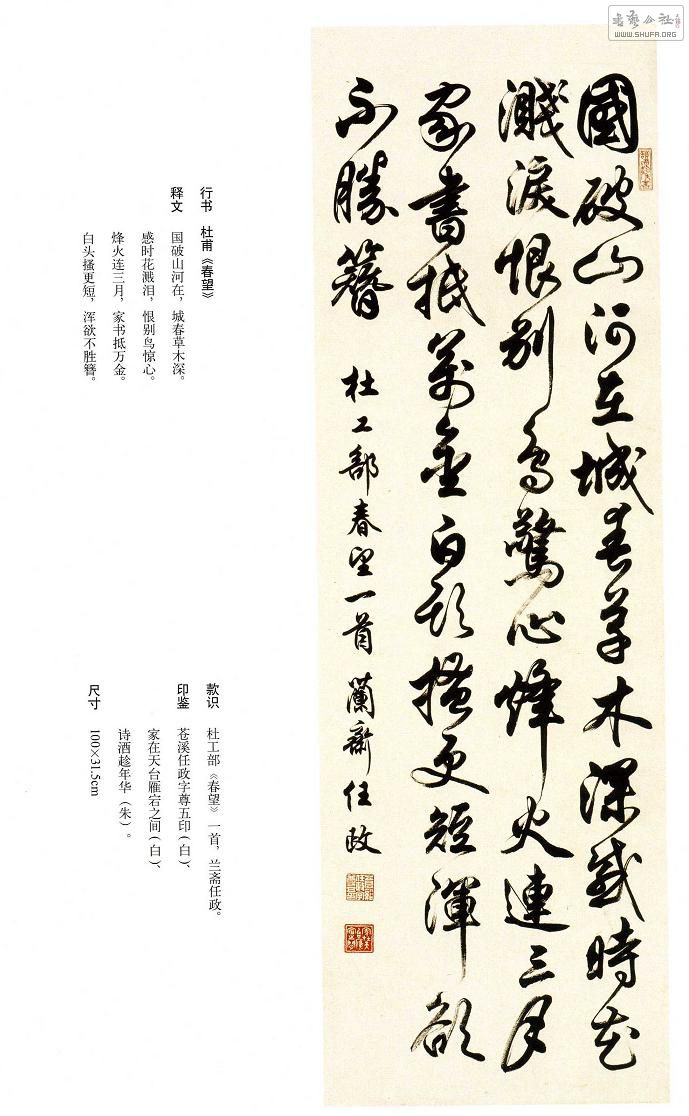 书艺公社
WWW.SHUFA.ORG
國破山河在城春草木深感時花
濺淚恨別鳥驚心烽火連三月
家書抵萬金白頭搔更短渾欲
不勝簪 杜工部春望一首 蘭齋任政
行书 杜甫《春望》
释文 国破山河在，城春草木深。
感时花溅泪，恨别鸟惊心。
烽火连三月，家书抵万金。
白头搔更短，浑欲不胜簪。
款识 杜工部《春望》一首，兰斋任政。
印鉴 苍溪任政字尊五印（白）、
家在天台雁宕之间（白）、
诗酒趁年华（朱）。
尺寸 100×31.5cm